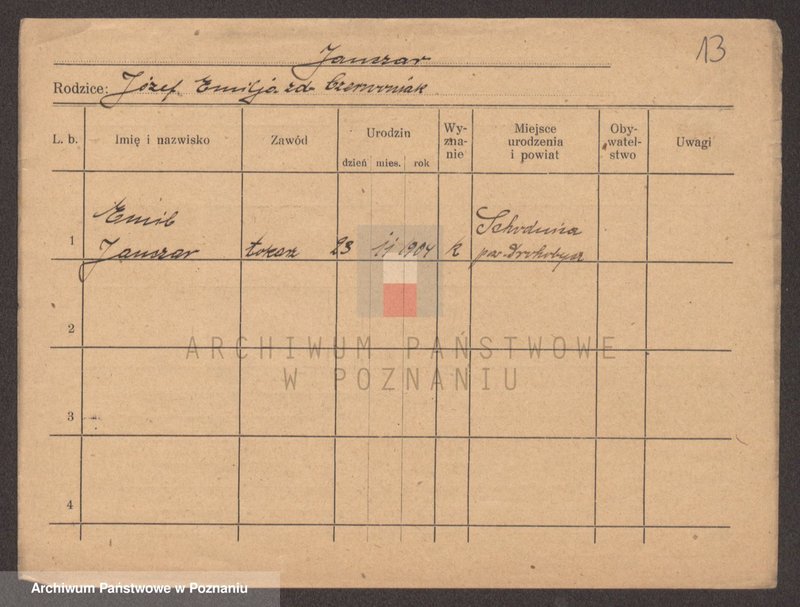 13
Januszar
Rodzice: Józef Emilja zd Czerwoniak
L. b.
Imię i nazwisko
Zawód
Urodzin
dzień mies. rok
Wy-
zna-
nie
Miejsce
urodzenia
i powiat
Oby-
watel-
stwo
Uwagi
1
Emil
Januszar
tokarz
23 11 1904
k
Schodnica
pow. Drohobycz
2
3
4
ARCHIWUM PAŃSTWOWE
W POZNANIU
Archiwum Państwowe w Poznaniu